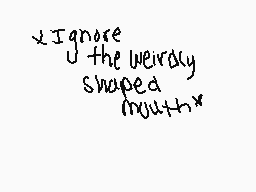 *Ignore
the weirdly
shaped
mouth*